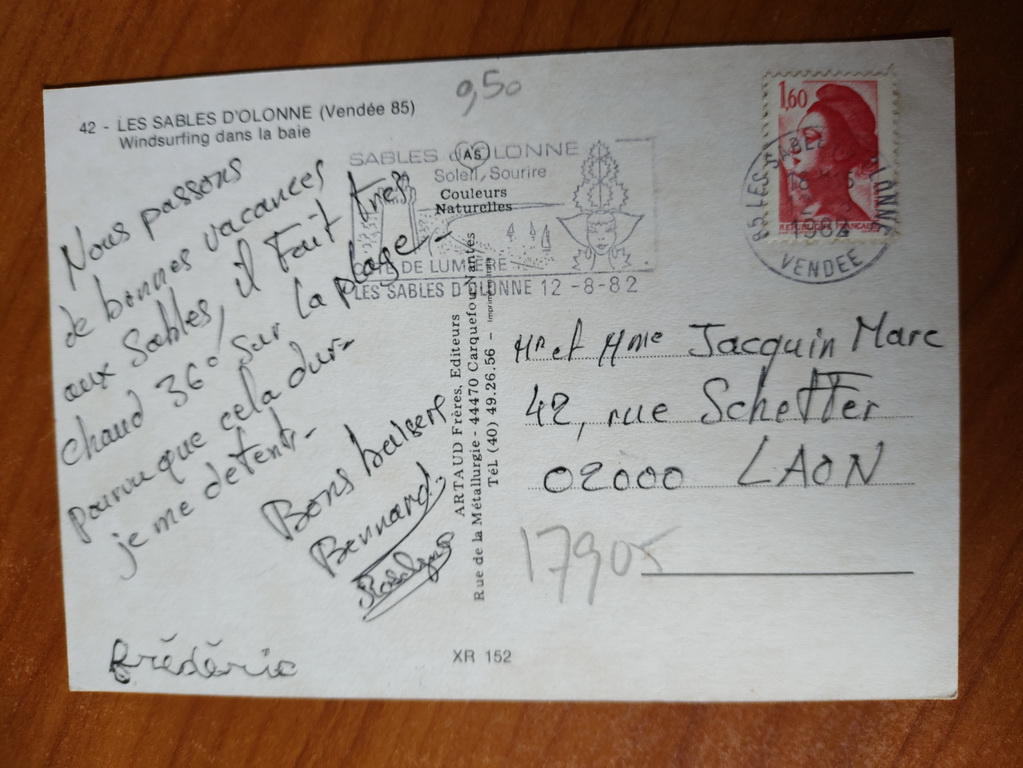 42 - LES SABLES D'OLONNE (Vendée 85)
Windsurfing dans la baie
9,50
Nous passons
de bonnes vacances
aux Sables, il fait très
chaud 36° sur la plage -
pourvu que cela dur-
je me detent -
Bons baisers
Bernard.
Frédéric
SABLES D'OLONNE
Soleil, Sourire
AS
Couleurs
Naturelles
COTE DE LUMIERE
LES SABLES D'OLONNE 12-8-82
ARTAUD Frères, Editeurs
Rue de la Métallurgie - 44470 Carquefou/Nantes
Tél (40) 49.26.56 -
XR 152
1,60
REPUBLIQUE FRANCAISE
85 LES SABLES D'OLONNE
VENDEE
Mr et Mme Jacquin Marc
42, rue Scheffer
02000 LAON
17905